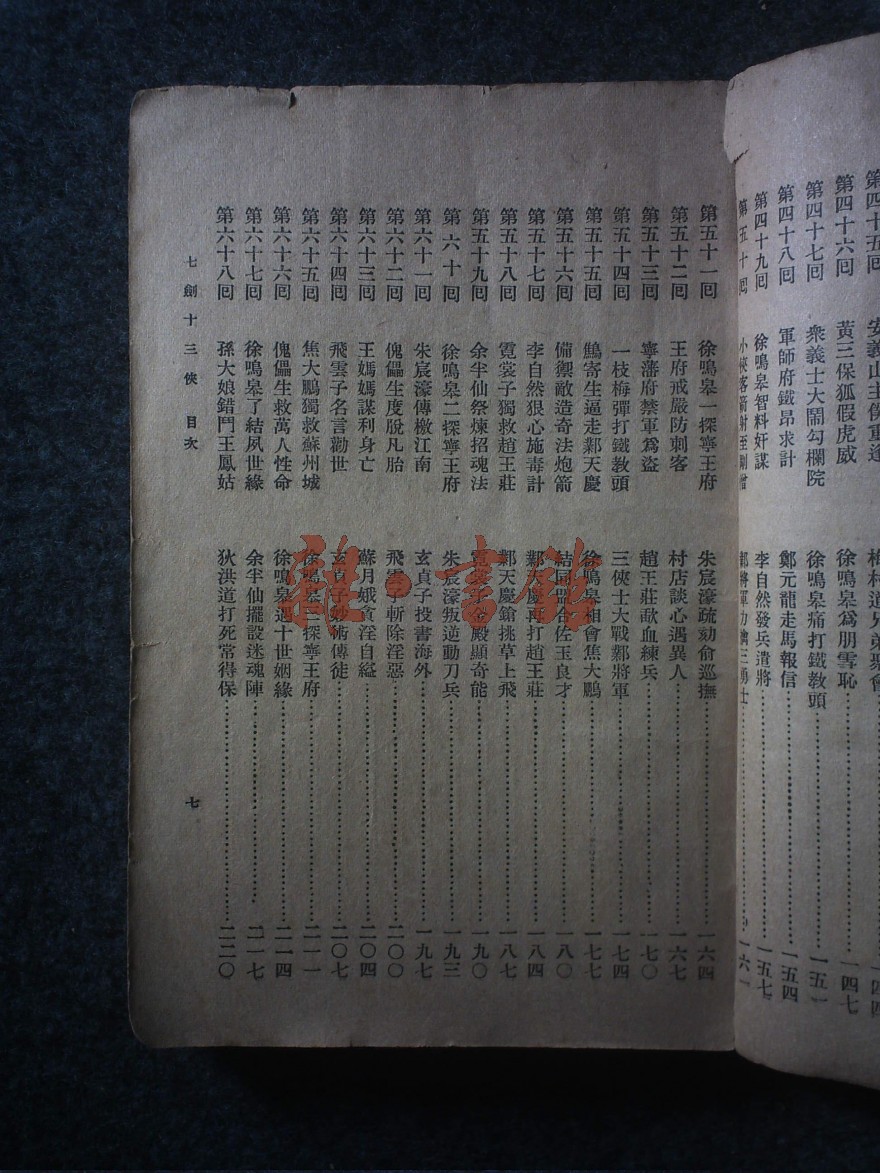 安義山主僕重逢 梅村道兄弟聚會 一四四
第四十六囘 黃三保狐假虎威 徐鳴皋爲朋雪恥 一四七
第四十七囘 衆義士大鬧勾欄院 徐鳴皋痛打鐵教頭 一五一
第四十八囘 軍師府鐵昂求計 鄭元龍走馬報信 一五四
第四十九囘 徐鳴皋智料奸謀 李自然發兵遣將 一五七
第五十囘 小俠客箭射 將軍力 三勇士 一六一
第五十一囘 徐鳴皋一探寧王府 朱宸濠疏劾俞巡撫 一六四
第五十二囘 王府戒嚴防刺客 村店談心遇異人 一六七
第五十三囘 寧藩府禁軍爲盜 趙王莊歃血練兵 一七〇
第五十四囘 一枝梅彈打鐵教頭 三俠士大戰鄴將軍 一七四
第五十五囘 鷦寄生逼走鄴天慶 徐鳴皋相會焦大鵬 一七七
第五十六囘 備禦敵造奇法炮箭 結同盟合佐玉良才 一八〇
第五十七囘 李自然狠心施毒計 鄴天慶再打趙王莊 一八四
第五十八囘 霓裳子獨救趙王莊 鄴天慶鎗挑草上飛 一八七
第五十九囘 余半仙祭煉招魂法 霓裳子金殿顯奇能 一九〇
第六十囘 徐鳴皋二探寧王府 朱宸濠叛逆動刀兵 一九三
第六十一囘 朱宸濠傳檄江南 玄貞子投書海外 一九七
第六十二囘 傀儡生度脫凡胎 飛雲子斬除淫惡 二〇〇
第六十三囘 王媽媽謀利身亡 蘇月娥貪淫自縊 二〇四
第六十四囘 飛雲子名言勸世 玄貞子妙術傳徒 二〇七
第六十五囘 焦大鵬獨救蘇州城 徐鳴皋三探寧王府 二一一
第六十六囘 傀儡生救萬人性命 徐鳴皋遇十世姻緣 二一四
第六十七囘 徐鳴皋了結夙世緣 余半仙擺設迷魂陣 二一七
第六十八囘 孫大娘錯鬥王鳳姑 狄洪道打死常得保 二二〇
七劍十三俠 目次 七
雜·書館